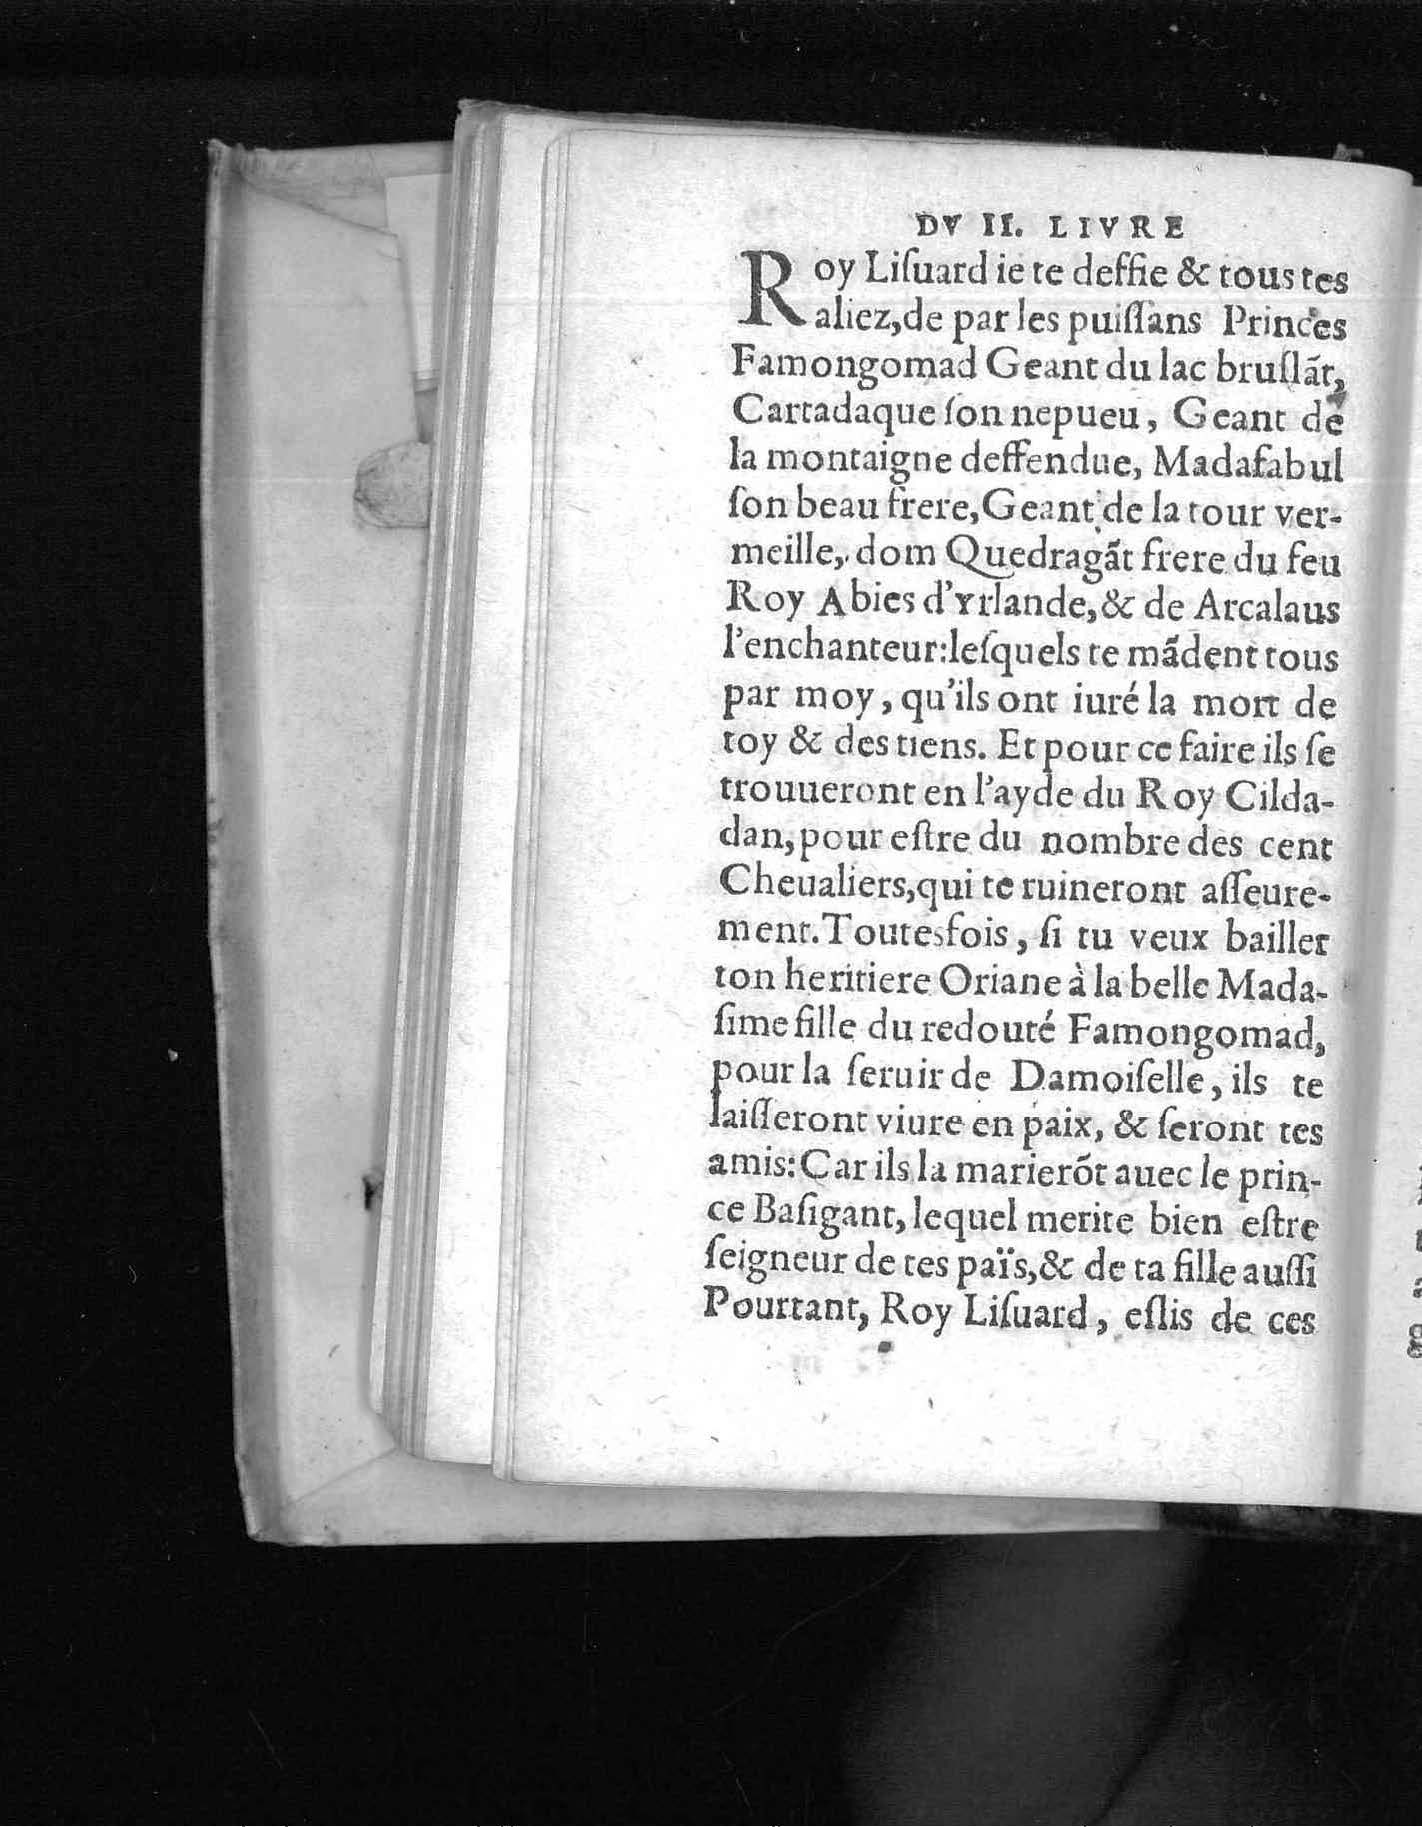 DV II. LIVRE
Roy Liſuard ie te deffie & tous tes
aliez,de par les puiſſans Princes
Famongomad Geant du lac bruſlãt,
Cartadaque ſon nepueu, Geant de
la montaigne deffendue, Madafabul
ſon beau frere,Geant de la tour ver-
meille, dom Quedragãt frere du feu
Roy Abies d'Yrlande,& de Arcalaus
l'enchanteur:leſquels te mãdent tous
par moy, qu'ils ont iuré la mort de
toy & des tiens. Et pour ce faire ils ſe
trouueront en l'ayde du Roy Cilda-
dan,pour eſtre du nombre des cent
Cheualiers,qui te ruineront aſſeure-
ment.Toutesfois, ſi tu veux bailler
ton heritiere Oriane à la belle Mada-
ſime fille du redouté Famongomad,
pour la ſeruir de Damoiſelle, ils te
laiſſeront viure en paix, & ſeront tes
amis:Car ils la marierõt auec le prin-
ce Baſigant, lequel merite bien eſtre
ſeigneur de tes païs,& de ta fille auſſi
Pourtant, Roy Liſuard, eſlis de ces